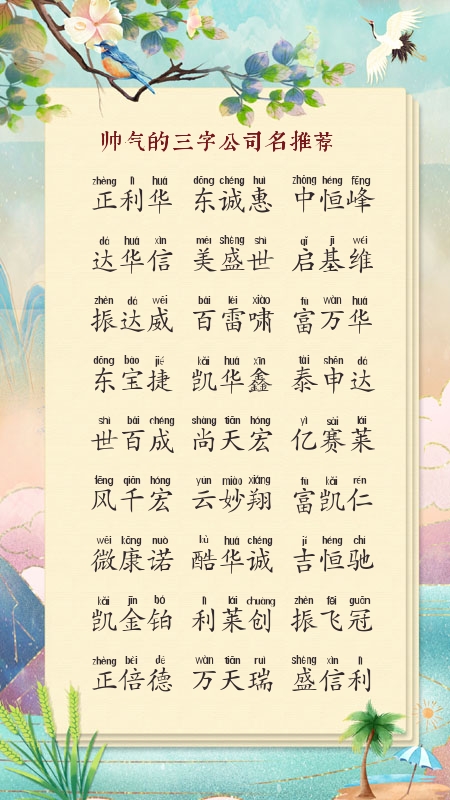 帅气的三字公司名推荐
zhèng lì huá dōng chéng huì zhōng héng fēng
正利华 东诚惠 中恒峰
dá huá xìn měi shèng shì qǐ jī wéi
达华信 美盛世 启基维
zhèn dá wēi bǎi léi xiào fù wàn huá
振达威 百雷啸 富万华
dōng bǎo jié kǎi huá xīn tài shēn dá
东宝捷 凯华鑫 泰申达
shì bǎi chéng shàng tiān hóng yì sài lái
世百成 尚天宏 亿赛莱
fēng qiān hóng yún miào xiáng fù kǎi rén
风千宏 云妙翔 富凯仁
wēi kāng nuò kù huá chéng jí héng chí
微康诺 酷华诚 吉恒驰
kǎi jīn bó lì lái chuàng zhèn fēi guān
凯金铂 利莱创 振飞冠
zhèng bèi dé wàn tiān ruì shèng xìn lì
正倍德 万天瑞 盛信利